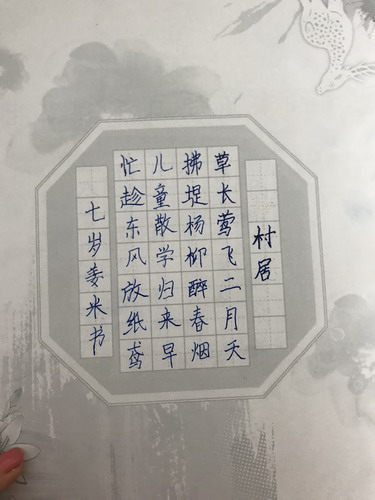 村居
草长莺飞二月天
拂堤杨柳醉春烟
儿童散学归来早
忙趁东风放纸鸢
七岁姜米书